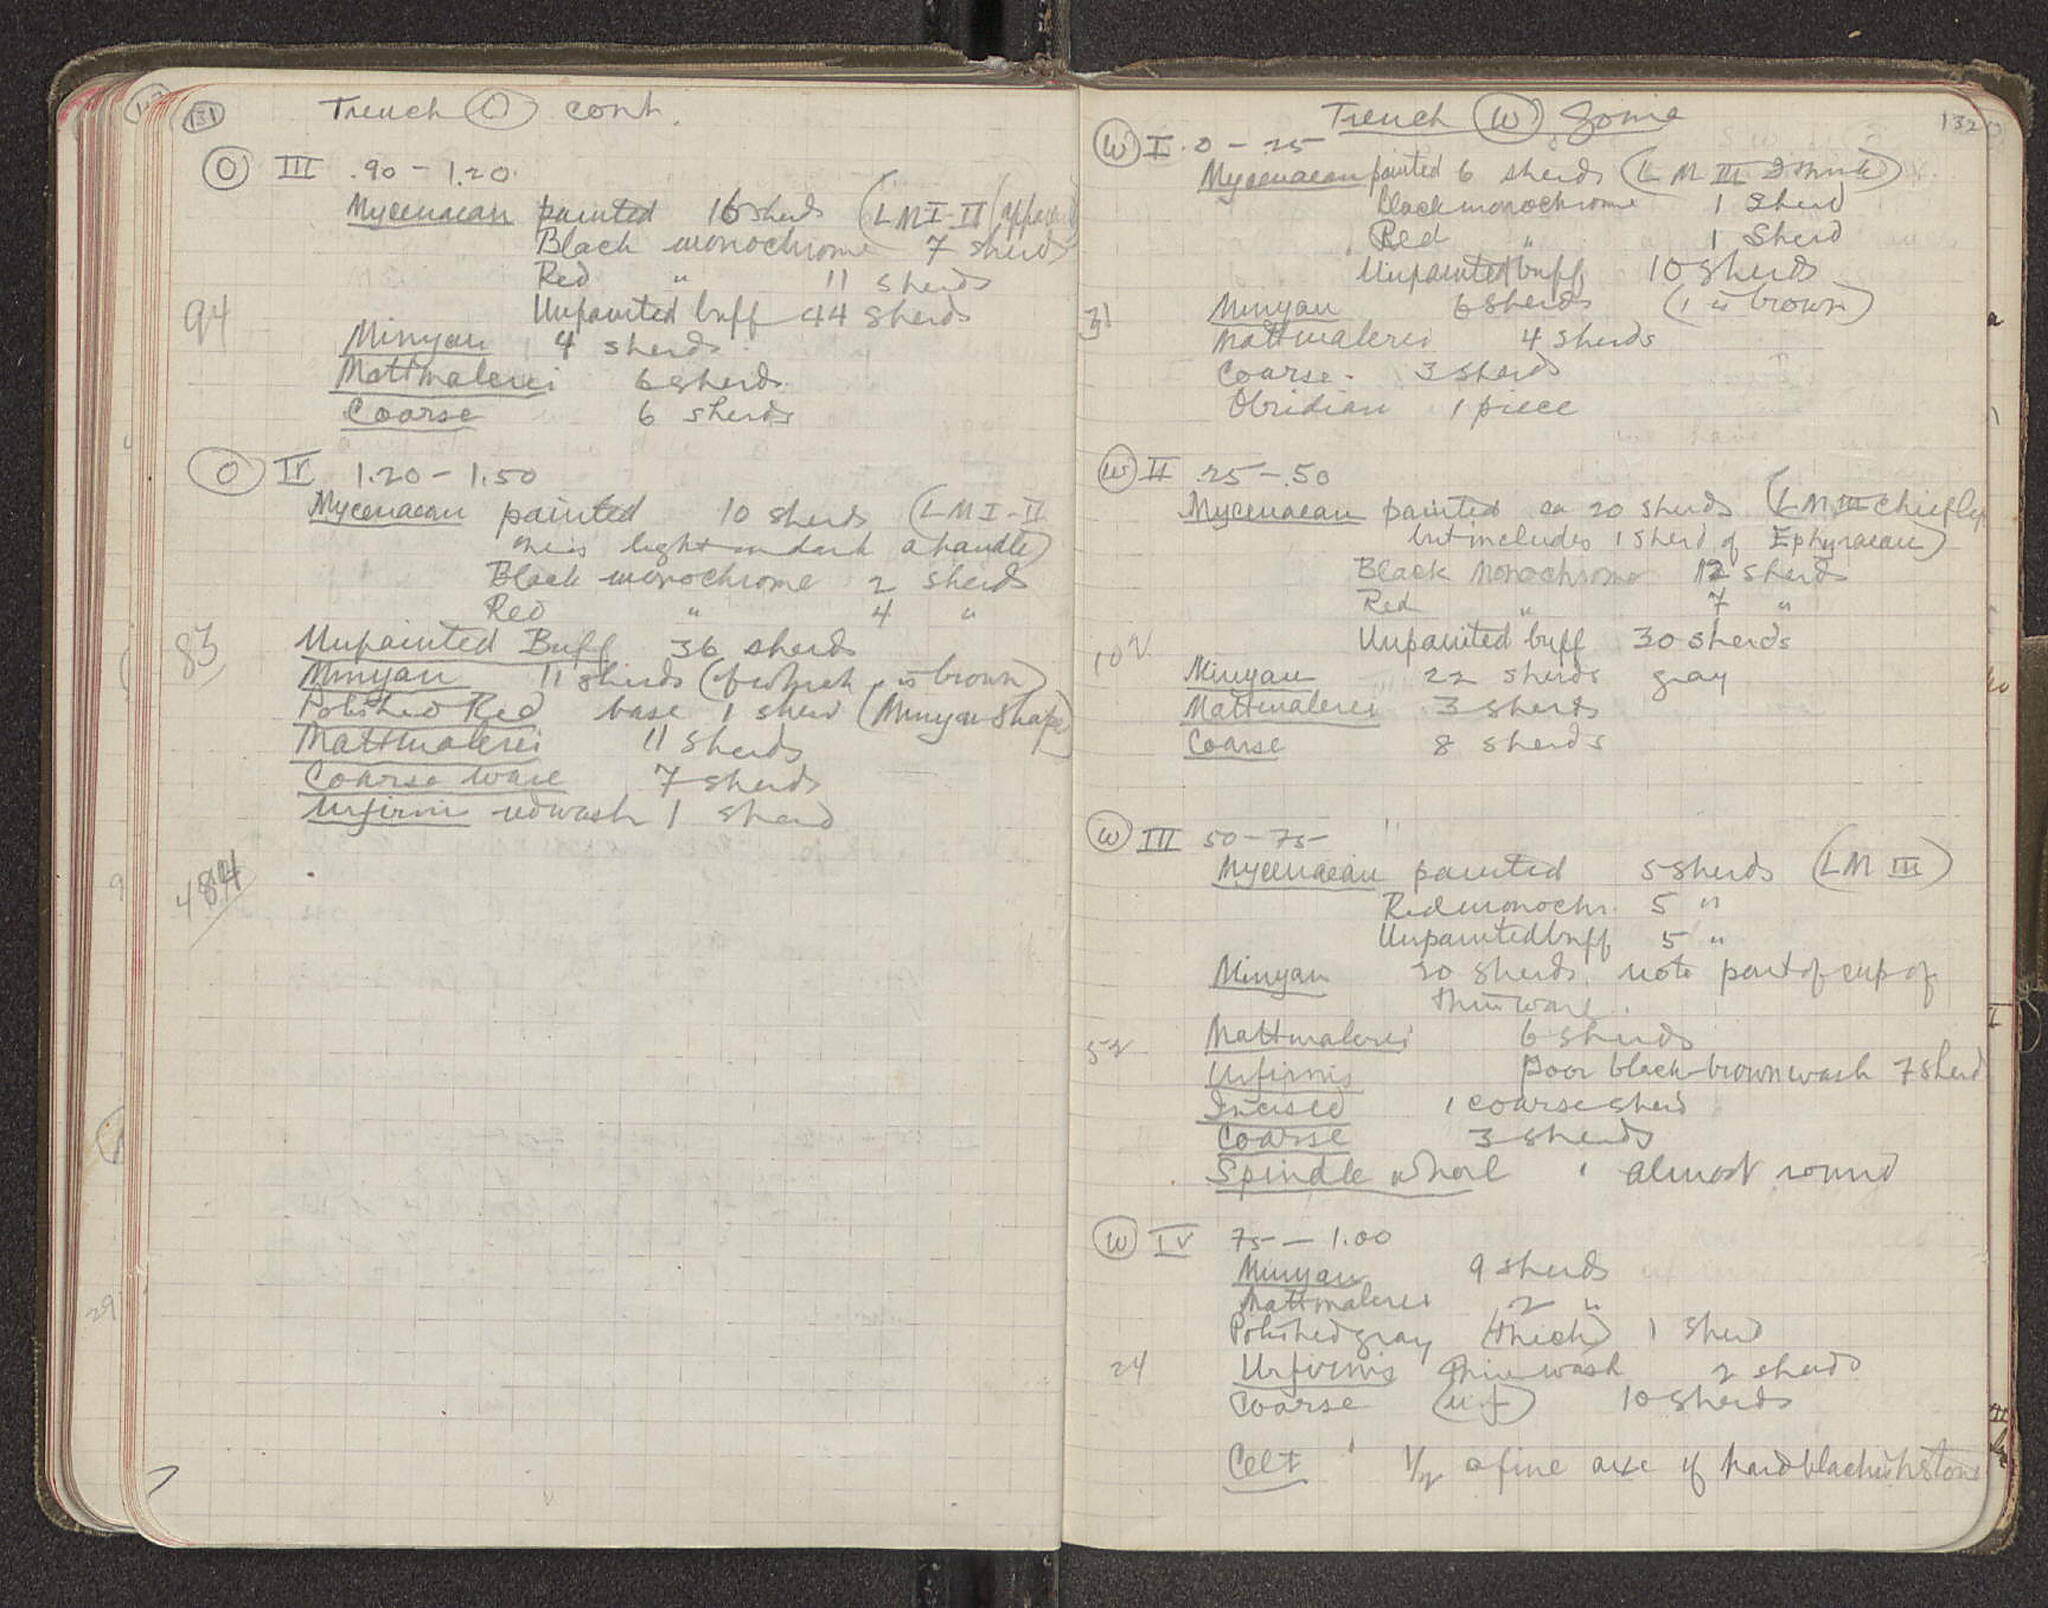 131
Trench (O) cont.
(O) III .90 - 1.20
Mycenaean painted 16 sherds (LM I-II
Black monochrome 7 sherds
Red " 11 sherds
Unpainted buff 44 sherds
94
Minyan 4 sherds
Mattmalerei 6 sherds
Coarse 6 sherds
(O) IV 1.20 - 1.50
Mycenaean painted 10 sherds (LM I-II
one is light on dark a handle)
Black monochrome 2 sherds
Red " 4 "
83
Unpainted Buff 36 sherds
Minyan 11 sherds (of which 1 is brown)
Polished Red base 1 sherd (Minyan shape)
Mattmalerei 11 sherds
Coarse ware 7 sherds
Urfirnis red wash 1 sherd
484
132
Trench (W)
(W) I .0 - .25
Mycenaean painted 6 sherds (LM III I think)
Black monochrome 1 Sherd
Red " 1 Sherd
Unpainted buff 10 sherds
31
Minyan 6 sherds (1 is brown)
Mattmalerei 4 sherds
Coarse. 3 sherds
Obsidian 1 piece
(W) II .25 - .50
Mycenaean painted ca 20 sherds (LM III chiefly
but includes 1 sherd of Ephyraean)
Black monochrome 12 sherds
Red " 7 "
102
Unpainted buff 30 sherds
Minyan 22 sherds gray
Mattmalerei 3 sherds
Coarse 8 sherds
(W) III 50 - 75
Mycenaean painted 5 sherds (LM III)
Red monochr. 5 "
Unpainted buff 5 "
Minyan 20 sherds. note part of cup of
thin ware.
52
Mattmalerei 6 sherds
Urfirnis Poor black-brown wash 7 sherd
Incised 1 coarse sherd
Coarse 3 sherds
Spindle whorl 1 almost round
(W) IV 75 - 1.00
Minyan 9 sherds
Mattmalerei 2 "
Polished gray (thick) 1 sherd
24
Urfirnis thin wash 2 sherds
Coarse (u.f) 10 sherds
Celt 1 1/2 a fine axe of hard blackish stone